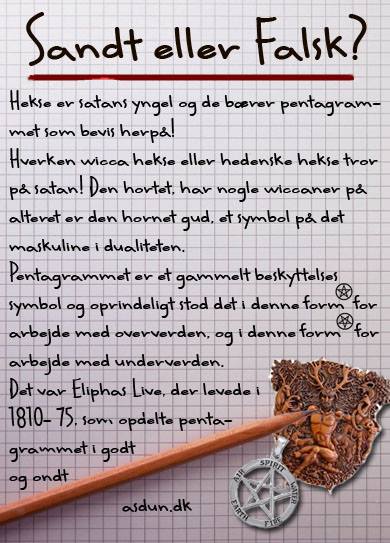 Sandt eller Falsk?
Hekse er satans yngel og de bærer pentagram-
met som bevis herpå!
Hverken wicca hekse eller hedenske hekse tror
på satan! Den hortet, har nogle wiccaner på
alteret er den hornet gud, et symbol på det
maskuline i dualiteten.
Pentagrammet er et gammelt beskyttelses
symbol og oprindeligt stod det i denne form for
arbejde med oververden, og i denne form for
arbejde med underverden.
Det var Eliphas Live, der levede i
1810- 75. som opdelte penta-
grammet i godt
og ondt
asdun.dk
AIR SPIRIT WATER
EARTH FIRE